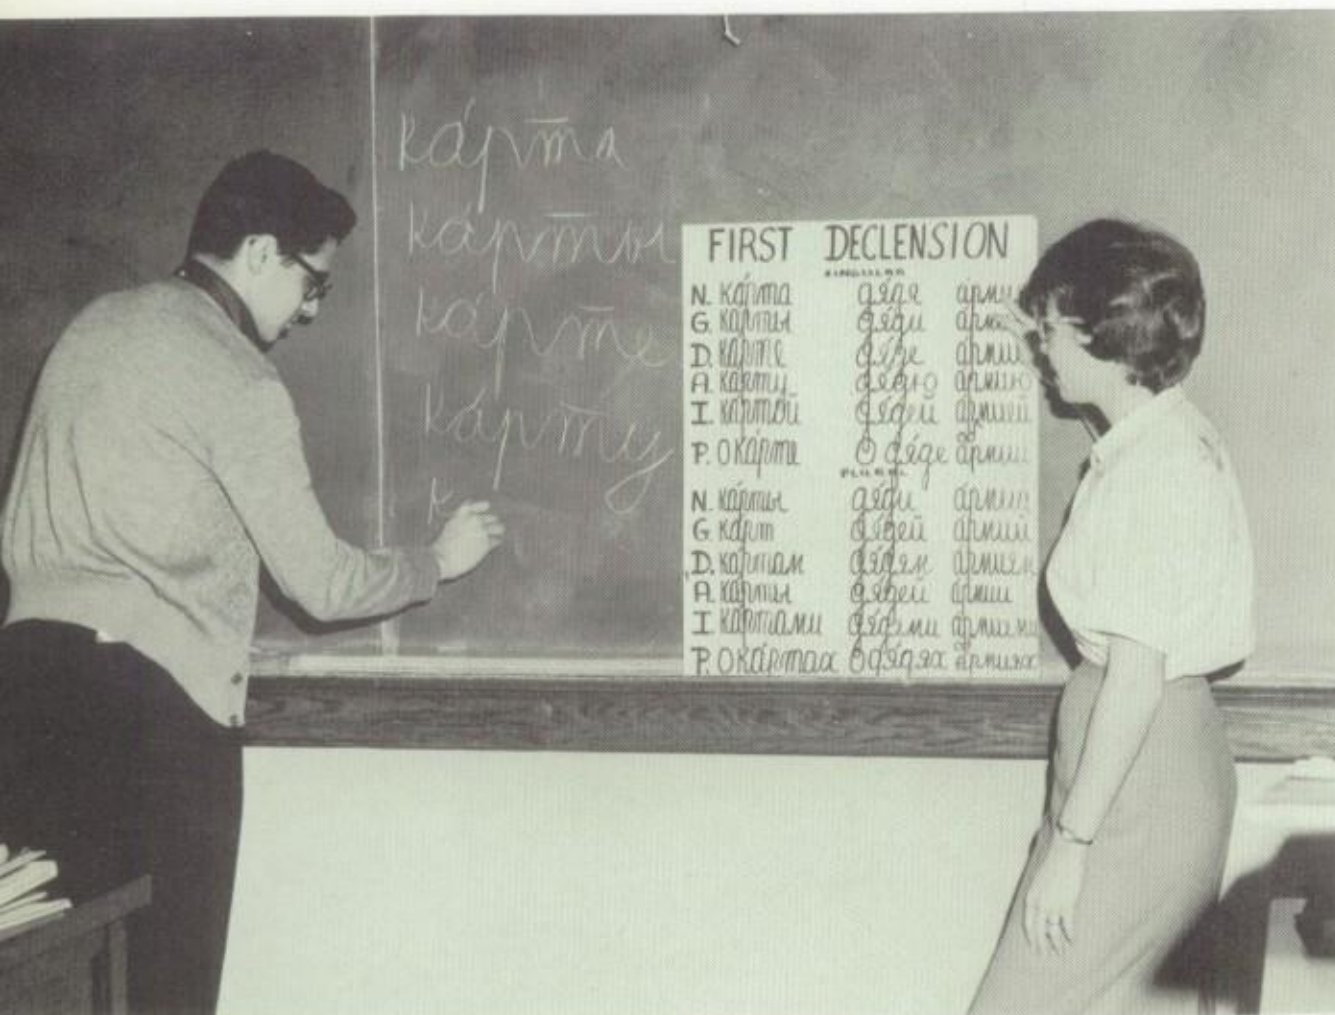 ка́рта
ка́рты
ка́рте
ка́рту
к
FIRST DECLENSION
SINGULAR
N. ка́рта дя́дя а́рми
G. ка́рты дя́ди а́рм
D. ка́рте дя́де а́рмии
A. ка́рту дя́дю а́рмию
I. ка́ртой дя́дей а́рмией
P. О ка́рте О дя́де а́рмии
PLURAL
N. ка́рты дя́ди а́рмии
G. ка́рт дя́дей а́рмий
D. ка́ртам дя́дям а́рмиям
A. ка́рты дя́дей а́рмии
I. ка́ртами дя́дями а́рмиями
P. О ка́ртах О дя́дях а́рмиях